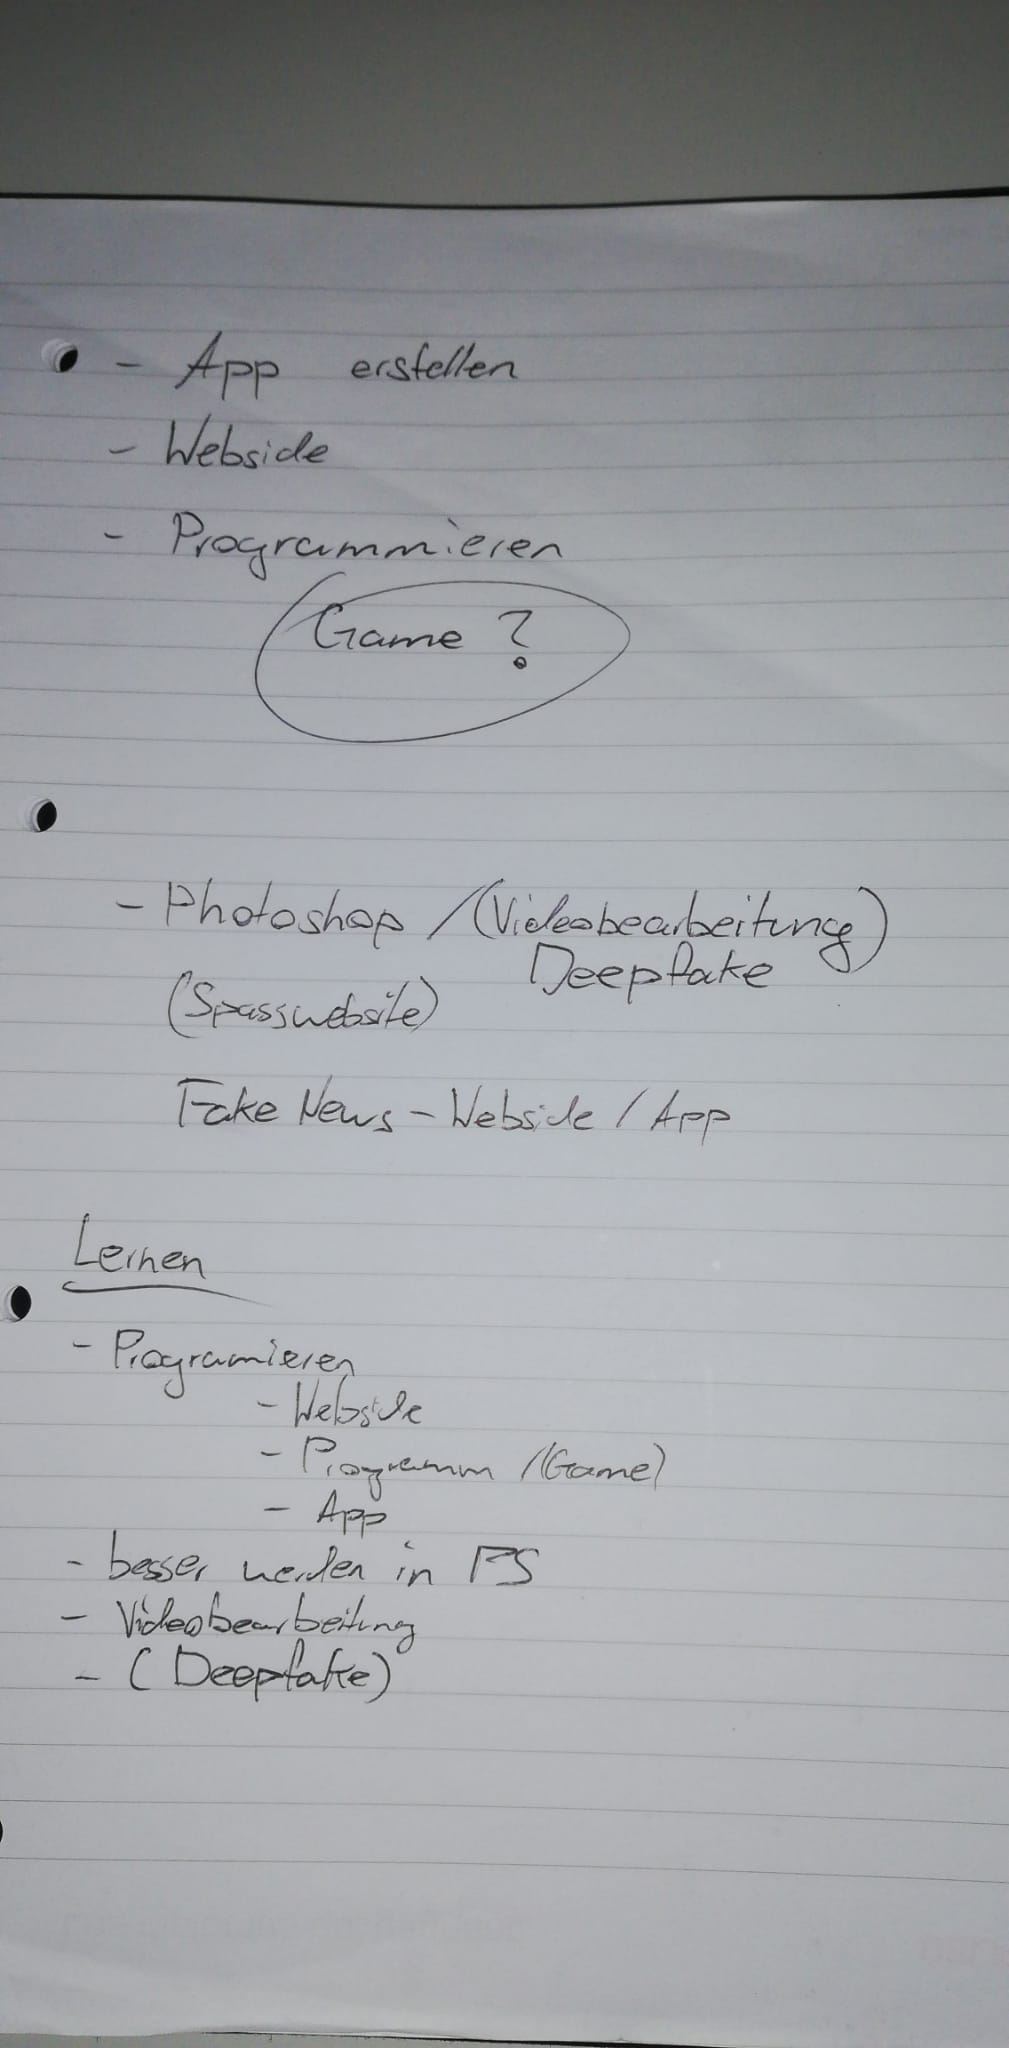 - App erstellen
- Webside
- Programmieren
Game ?
- Photoshop / (Videobearbeitung)
Deepfake
(Spasswebsite)
Fake News - Webside / App
Lernen
- Programieren
- Webside
- Programm / (Game)
- App
- besser werden in PS
- Videobearbeitung
- (Deepfake)